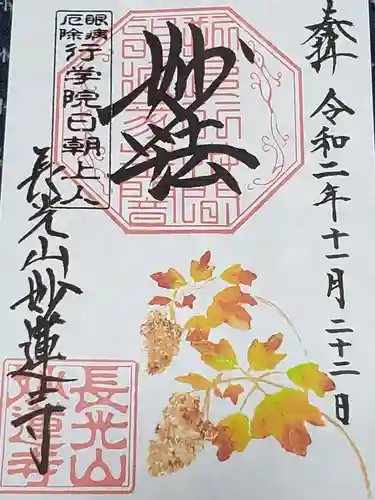 奉拝 令和二年十一月二十二日
妙法
眼病
厄除
行学院日朝上人
長光山妙蓮寺
長光山
妙蓮寺